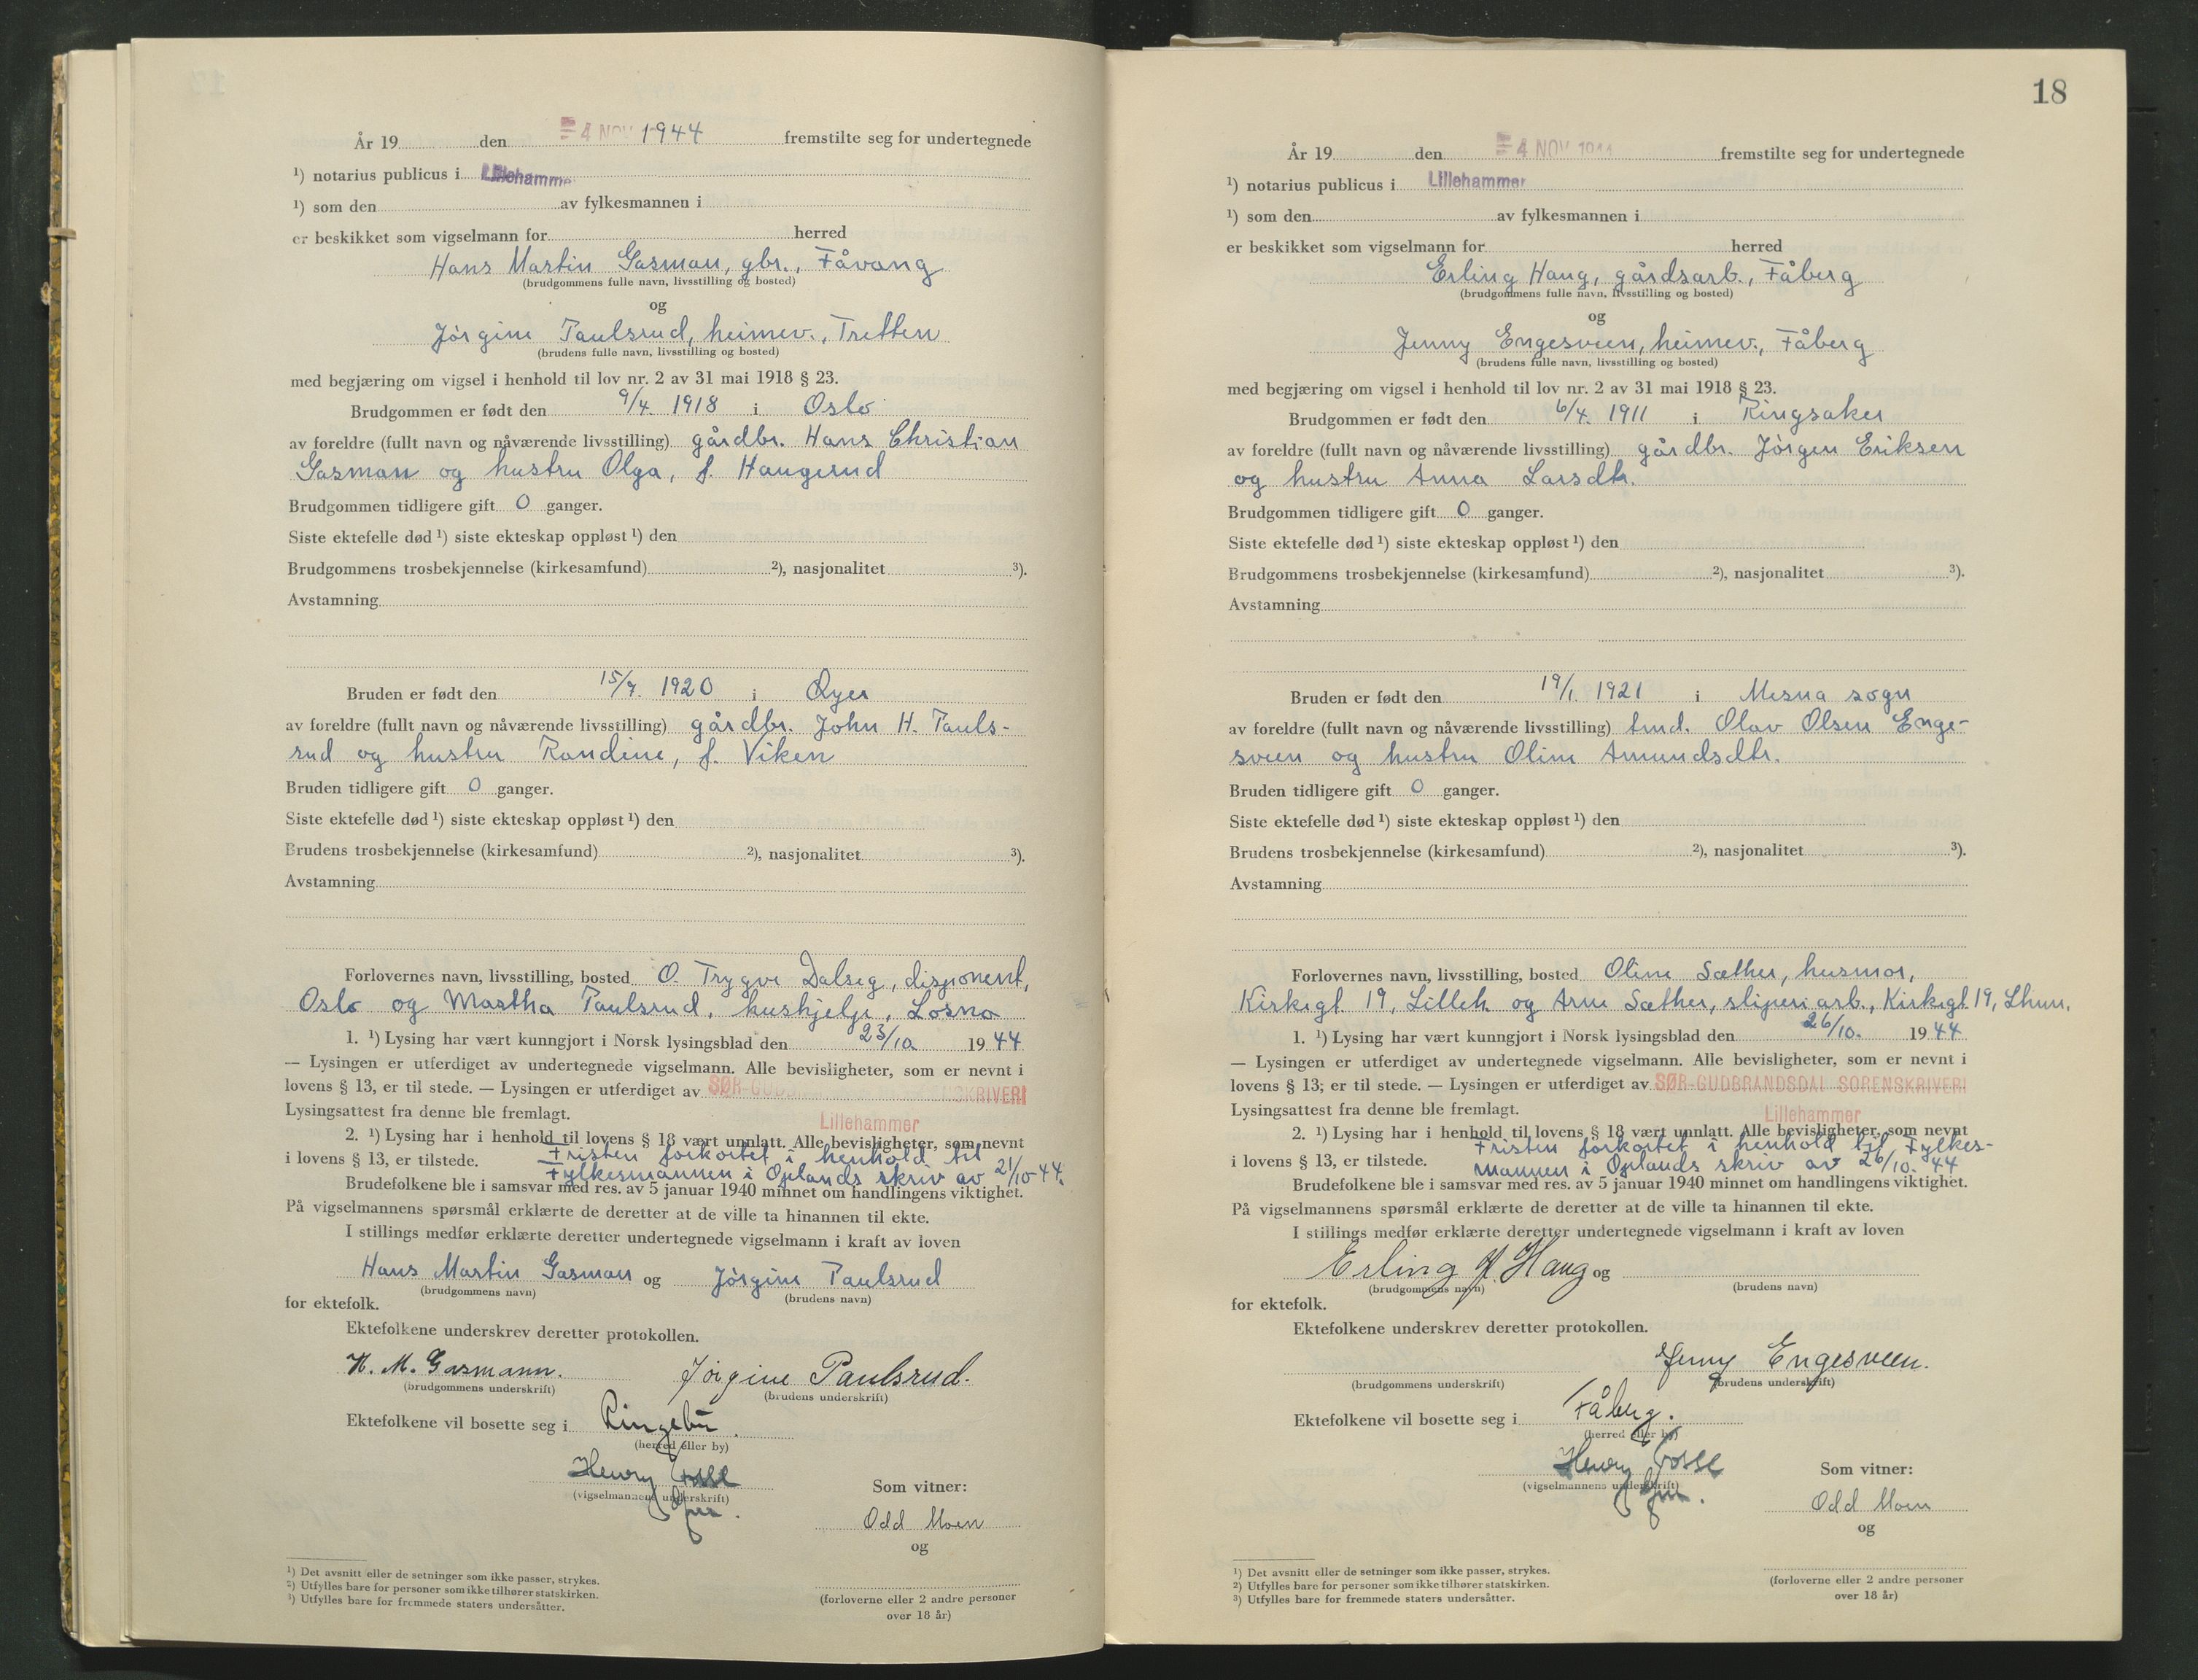 År 19 den 4 NOV 1944 fremstilte seg for undertegnede
1) notarius publicus i Lillehammer
1) som den av fylkesmannen i
er beskikket som vigselmann for herred
Hans Martin Gasman, gbr., Fåvang
(brudgommens fulle navn, livsstilling og bosted)
og
Jörgine Paulsrud, heimev., Tretten
(brudens fulle navn, livsstilling og bosted)
med begjæring om vigsel i henhold til lov nr. 2 av 31 mai 1918 § 23.
Brudgommen er født den 9/4. 1918 i Oslo
av foreldre (fullt navn og nåværende livsstilling) gårdbr. Hans Christian
Gasman og hustru Olga, f. Haugerud
Brudgommen tidligere gift 0 ganger.
Siste ektefelle død 1) siste ekteskap oppløst 1) den
Brudgommens trosbekjennelse (kirkesamfund) 2), nasjonalitet 3).
Avstamning
Bruden er født den 15/7. 1920 i Øyer
av foreldre (fullt navn og nåværende livsstilling) gårdbr. John H. Pauls-
rud og hustru Randine, f. Viken
Bruden tidligere gift 0 ganger.
Siste ektefelle død 1) siste ekteskap oppløst 1) den
Brudens trosbekjennelse (kirkesamfund) 2), nasjonalitet 3).
Avstamning
Forlovernes navn, livsstilling, bosted O. Trygve Dalseg, disponent,
Oslo og Martha Paulsrud, hushjelp, Losna
1. 1) Lysing har vært kunngjort i Norsk lysingsblad den 23/10. 1944
— Lysingen er utferdiget av undertegnede vigselmann. Alle bevisligheter, som er nevnt i
lovens § 13, er til stede. — Lysingen er utferdiget av SØR-GUDBRANDSDAL SORENSKRIVERI
Lysingsattest fra denne ble fremlagt.
Lillehammer
2. 1) Lysing har i henhold til lovens § 18 vært unnlatt. Alle bevisligheter, som nevnt
i lovens § 13, er tilstede. Fristen forkortet i henhold til
Fylkesmannen i Oplands skriv av 21/10-44.
Brudefolkene ble i samsvar med res. av 5 januar 1940 minnet om handlingens viktighet.
På vigselmannens spørsmål erklærte de deretter at de ville ta hinannen til ekte.
I stillings medfør erklærte deretter undertegnede vigselmann i kraft av loven
Hans Martin Gasman og Jörgine Paulsrud
(brudgommens navn) (brudens navn)
for ektefolk.
Ektefolkene underskrev deretter protokollen.
H. M. Gasmann. Jörgine Paulsrud.
(brudgommens underskrift) (brudens underskrift)
Ektefolkene vil bosette seg i Ringebu.
(herred eller by)
Henry Fosse
(vigselmannens underskrift)
Som vitner:
Odd Moen
og
(forloverne eller 2 andre personer
over 18 år)
1) Det avsnitt eller de setninger som ikke passer, strykes.
2) Utfylles bare for personer som ikke tilhører statskirken.
3) Utfylles bare for fremmede staters undersåtter.
18
År 19 den 4 NOV 1944 fremstilte seg for undertegnede
1) notarius publicus i Lillehammer
1) som den av fylkesmannen i
er beskikket som vigselmann for herred
Erling Haug, gårdsarb., Fåberg
(brudgommens fulle navn, livsstilling og bosted)
og
Jenny Engesveen, heimev., Fåberg
(brudens fulle navn, livsstilling og bosted)
med begjæring om vigsel i henhold til lov nr. 2 av 31 mai 1918 § 23.
Brudgommen er født den 6/4. 1911 i Ringsaker
av foreldre (fullt navn og nåværende livsstilling) gårdbr. Jörgen Eriksen
og hustru Anna Larsdtr.
Brudgommen tidligere gift 0 ganger.
Siste ektefelle død 1) siste ekteskap oppløst 1) den
Brudgommens trosbekjennelse (kirkesamfund) 2), nasjonalitet 3).
Avstamning
Bruden er født den 19/1. 1921 i Mesna sogn
av foreldre (fullt navn og nåværende livsstilling) tmd. Olav Olsen Enge-
sveen og hustru Oline Amundsdtr.
Bruden tidligere gift 0 ganger.
Siste ektefelle død 1) siste ekteskap oppløst 1) den
Brudens trosbekjennelse (kirkesamfund) 2), nasjonalitet 3).
Avstamning
Forlovernes navn, livsstilling, bosted Oline Sæther, husmor,
Kirkegt. 19, Lilleh. og Arne Sæther, sliperiarb., Kirkegt. 19, Lhmr.
1. 1) Lysing har vært kunngjort i Norsk lysingsblad den 26/10. 1944
— Lysingen er utferdiget av undertegnede vigselmann. Alle bevisligheter, som er nevnt i
lovens § 13; er til stede. — Lysingen er utferdiget av SØR-GUDBRANDSDAL SORENSKRIVERI
Lysingsattest fra denne ble fremlagt.
Lillehammer
2. 1) Lysing har i henhold til lovens § 18 vært unnlatt. Alle bevisligheter, som nevnt
i lovens § 13, er tilstede. Fristen forkortet i henhold til Fylkes-
mannen i Oplands skriv av 26/10. 44
Brudefolkene ble i samsvar med res. av 5 januar 1940 minnet om handlingens viktighet.
På vigselmannens spørsmål erklærte de deretter at de ville ta hinannen til ekte.
I stillings medfør erklærte deretter undertegnede vigselmann i kraft av loven
Erling J. Haug og
(brudgommens navn) (brudens navn)
for ektefolk.
Ektefolkene underskrev deretter protokollen.
Jenny Engesveen.
(brudgommens underskrift) (brudens underskrift)
Ektefolkene vil bosette seg i Fåberg.
(herred eller by)
Henry Fosse
(vigselmannens underskrift)
Som vitner:
Odd Moen
og
(forloverne eller 2 andre personer
over 18 år)
1) Det avsnitt eller de setninger som ikke passer, strykes.
2) Utfylles bare for personer som ikke tilhører statskirken.
3) Utfylles bare for fremmede staters undersåtter.